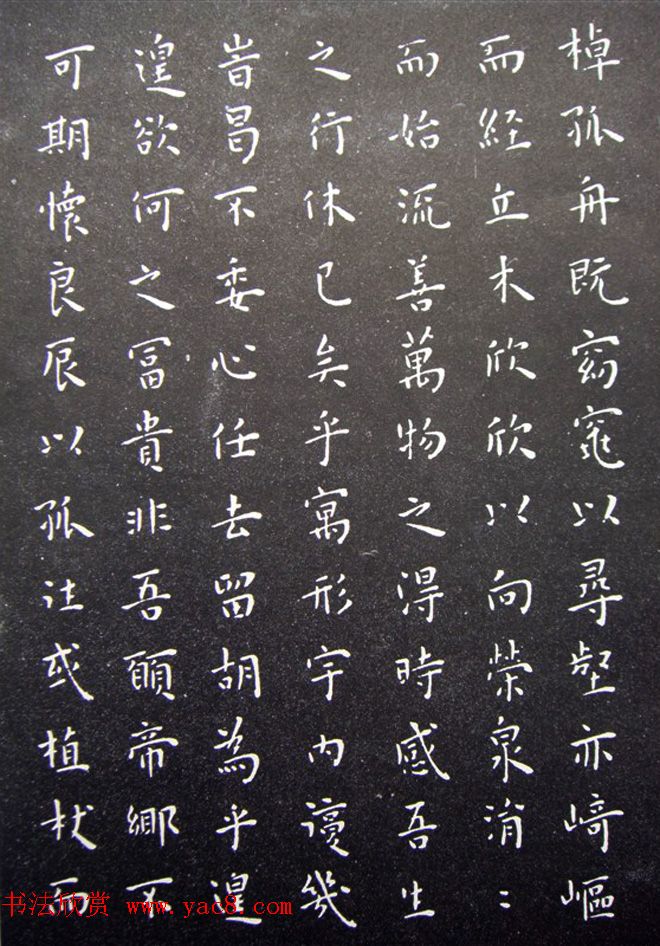 棹孤舟既窈窕以尋壑亦崎嶇
而經丘木欣欣以向榮泉涓〻
而始流善萬物之得時感吾生
之行休已矣乎寓形宇內復幾
旹曷不委心任去留胡為乎遑
遑欲何之富貴非吾願帝鄉不
可期懷良辰以孤往或植杖而
书法欣赏 www.yac8.com